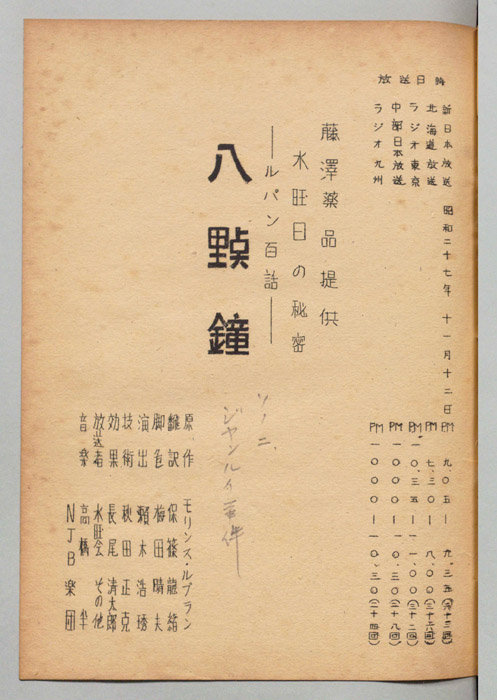 放送日時
新日本放送 昭和二十七年 十一月十二日 PM 九.〇五―九.三五(九十三回)
北海道放送 PM 七.三〇―八.〇〇(三十六回)
ラジオ東京 PM 一〇.三五―一一.〇〇(三十二回)
中部日本放送 PM 一〇〇〇―一〇.三〇(二十八回)
ラジオ九州 PM 一〇〇〇―一〇.三〇(二十四回)
藤澤薬品提供
水旺日の秘密
―ルパン百話―
八點鐘
ジャンルイ事件
原作 モリンス・ルブラン
飜訳 保篠龍緒
脚色 梅田晴夫
演出 瀬木浩
技術 秋田正克
効果 長尾清太郎
放送者 水旺会 その他
音楽 高橋半
NJB楽団